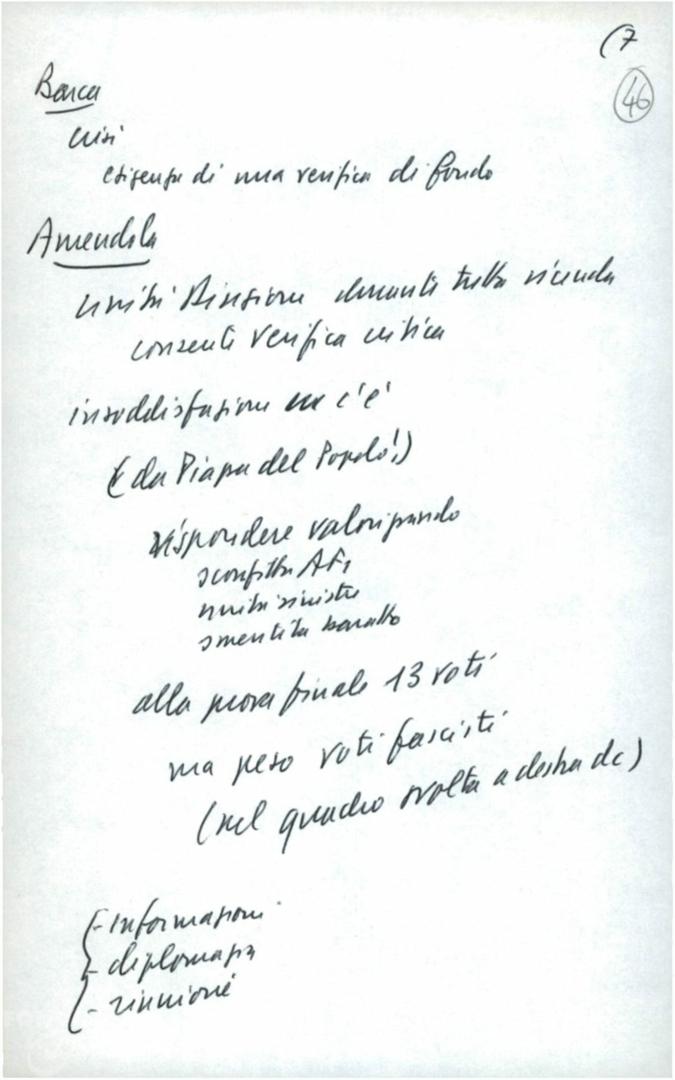 (7
46
Barca
crisi
esigenza di una verifica di fondo
Amendola
unità Direzione durante tutta vicenda
consente verifica critica
insoddisfazione c'è
(da Piazza del Popolo!)
rispondere valorizzando
sconfitta AF,
unità sinistre
smentita baratto
alla prova finale 13 voti
ma peso voti fascisti
(nel quadro svolta a destra dc)
- informazioni
- diplomazia
- riunioni